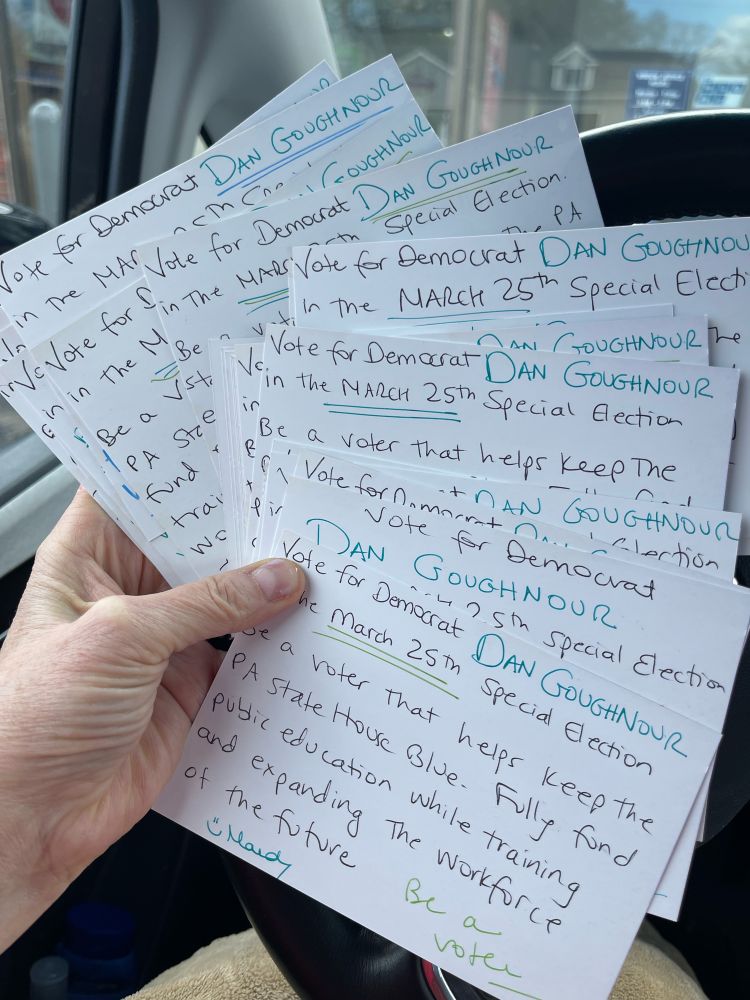 Vote for Democrat DAN GOUGHNOUR
in the MAR
GOUGHNOUR
Vote for Democrat DAN GOUGHNOUR
in The MARC Special Election.
PA
Be a
Vote for Democrat DAN GOUGHNOU
In the MARCH 25th Special Electi
the
DAN GOUGHNOUR
Vote for Democrat DAN GOUGHNOUR
in the MARCH 25th Special Election
Be a voter that helps keep The
Vote for
in the M
Be a
PA Sta
fund
trai
Vote for Democrat DAN GOUGHNOUR
Election
Vote for Democrat
DAN GOUGHNOUR
25th Special Election
Vote for Democrat DAN GOUGHNOUR
he March 25th Special Election
Be a voter that helps keep The
PA State House Blue. Fully fund
public education while training
and expanding The workforce
of the future
Be a
voter